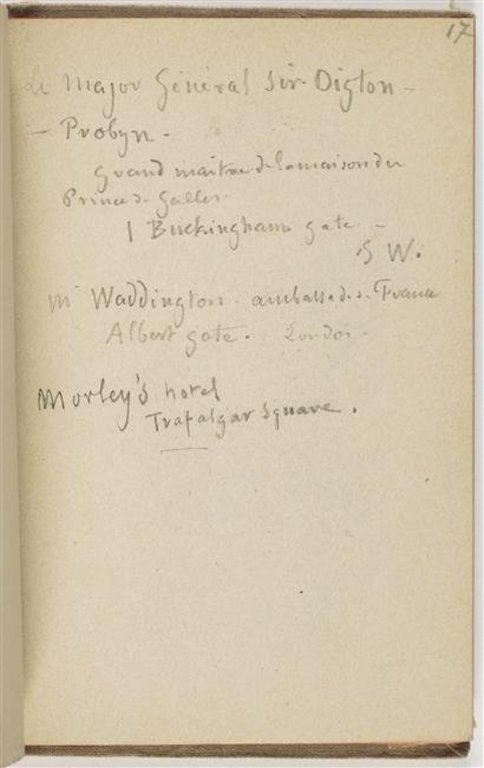 17
Le Major Général Sir Digton -
- Probyn -
Grand maitre de la maison du
Prince de Galles
1 Buckingham gate -
S W.
Mr Waddington. ambassade de France
Albert gate. London -
Morley's hotel
Trafalgar Square.